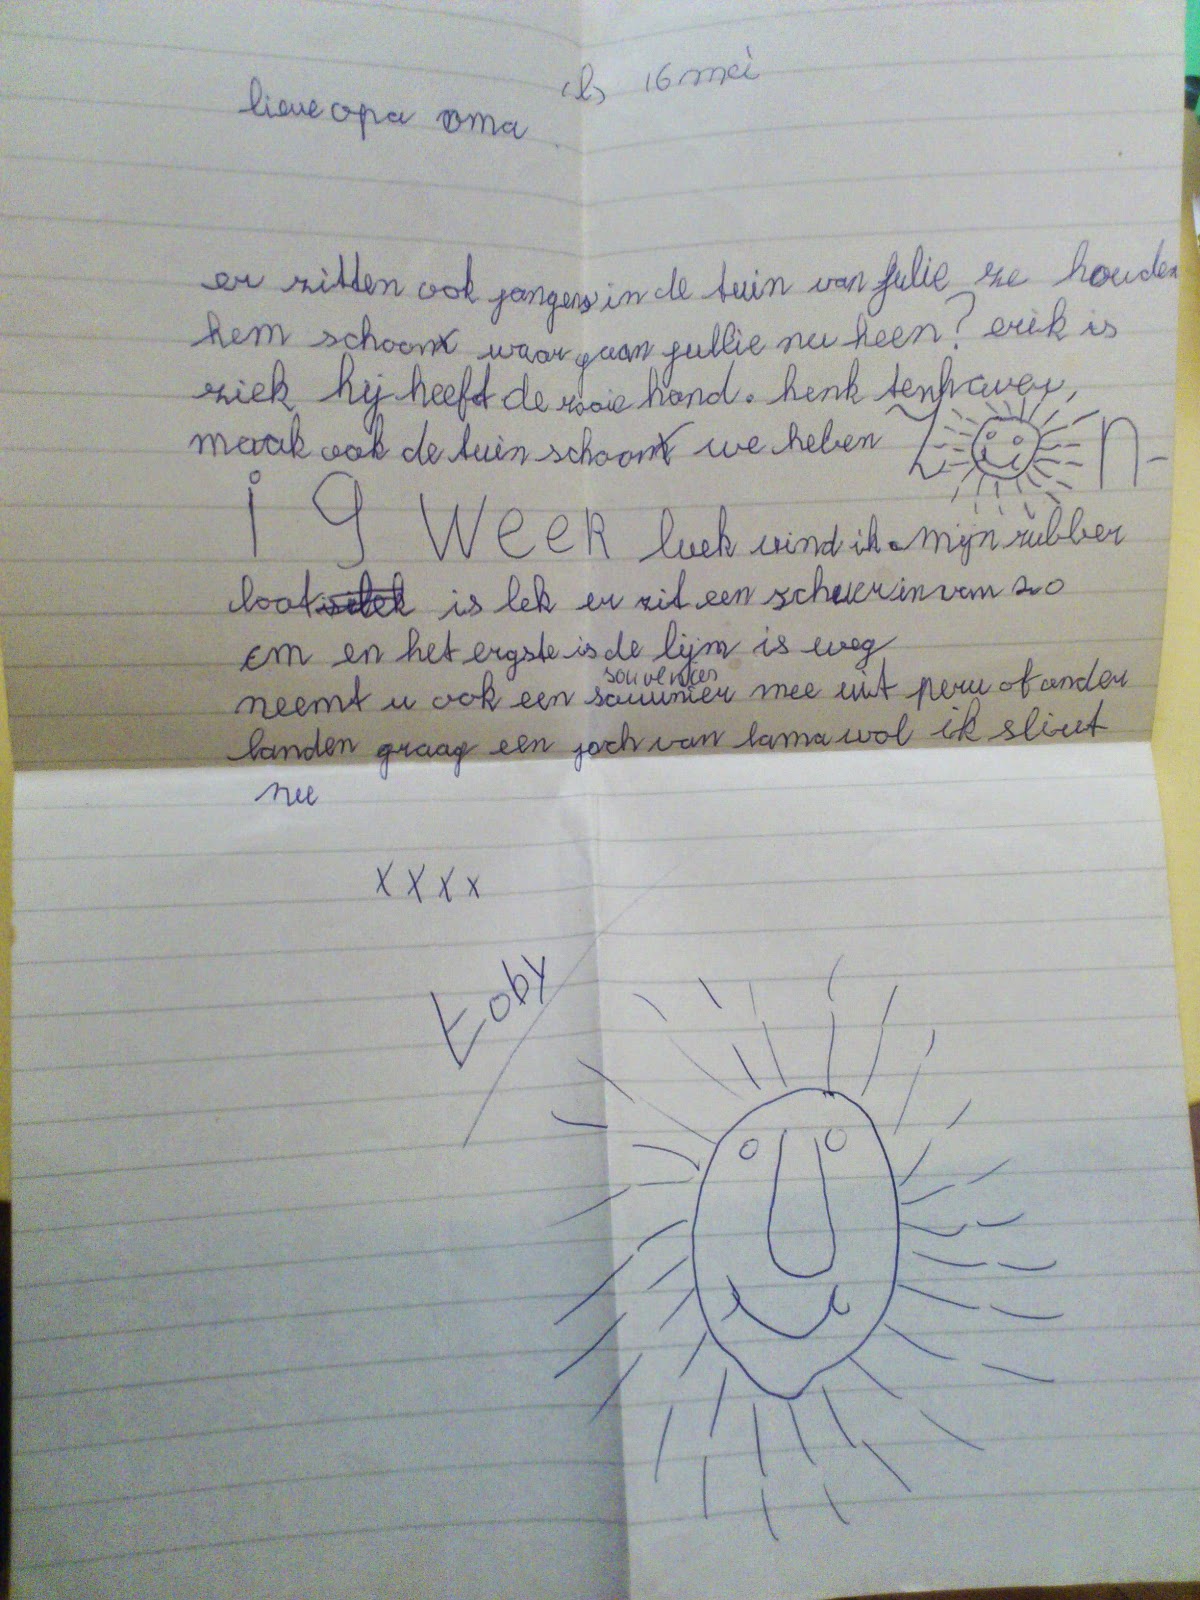 16 mei
lieve opa oma
er zitten ook jongens in de tuin van julie ze houden
hem schoon waar gaan jullie nu heen? erik is
ziek hij heeft de rooie hond. henk tenhaver,
maak ook de tuin schoon we heben ZON-
iG WEEK luek vind ik. Mijn rubber
boot is lek er zit een scheur in van 20
cm en het ergste is de lijm is weg
neemt u ook een souvenier mee uit peru of ander
landen graag een joch van lama wol ik sliut
nu
XXXX
Toby